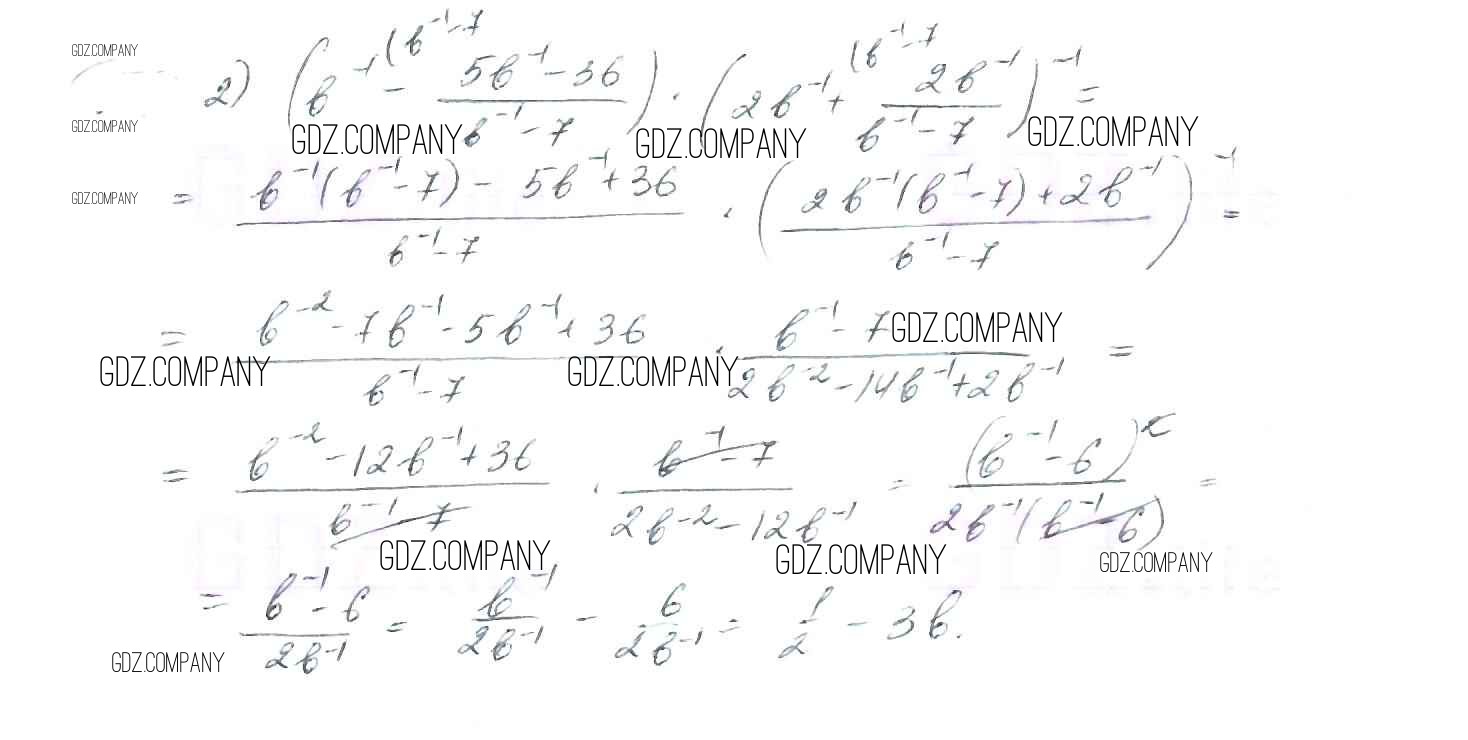 GDZ.COMPANY
2) (b⁻¹ - (5b⁻¹ - 36)/(b⁻¹ - 7)) · (2b⁻¹ + (2b⁻¹)/(b⁻¹ - 7))⁻¹ =
(b⁻¹ - 7 (b⁻¹ - 7
GDZ.COMPANY GDZ.COMPANY GDZ.COMPANY GDZ.COMPANY
GDZ.COMPANY = (b⁻¹(b⁻¹ - 7) - 5b⁻¹ + 36)/(b⁻¹ - 7) · ((2b⁻¹(b⁻¹ - 7) + 2b⁻¹)/(b⁻¹ - 7))⁻¹ =
= (b⁻² - 7b⁻¹ - 5b⁻¹ + 36)/(b⁻¹ - 7) · (b⁻¹ - 7)/(2b⁻² - 14b⁻¹ + 2b⁻¹) =
GDZ.COMPANY GDZ.COMPANY GDZ.COMPANY
= (b⁻² - 12b⁻¹ + 36)/(b⁻¹ - 7) · (b⁻¹ - 7)/(2b⁻² - 12b⁻¹) = (b⁻¹ - 6)²/(2b⁻¹(b⁻¹ - 6)) =
GDZ.COMPANY GDZ.COMPANY GDZ.COMPANY
= (b⁻¹ - 6)/(2b⁻¹) = b⁻¹/(2b⁻¹) - 6/(2b⁻¹) = 1/2 - 3b.
GDZ.COMPANY